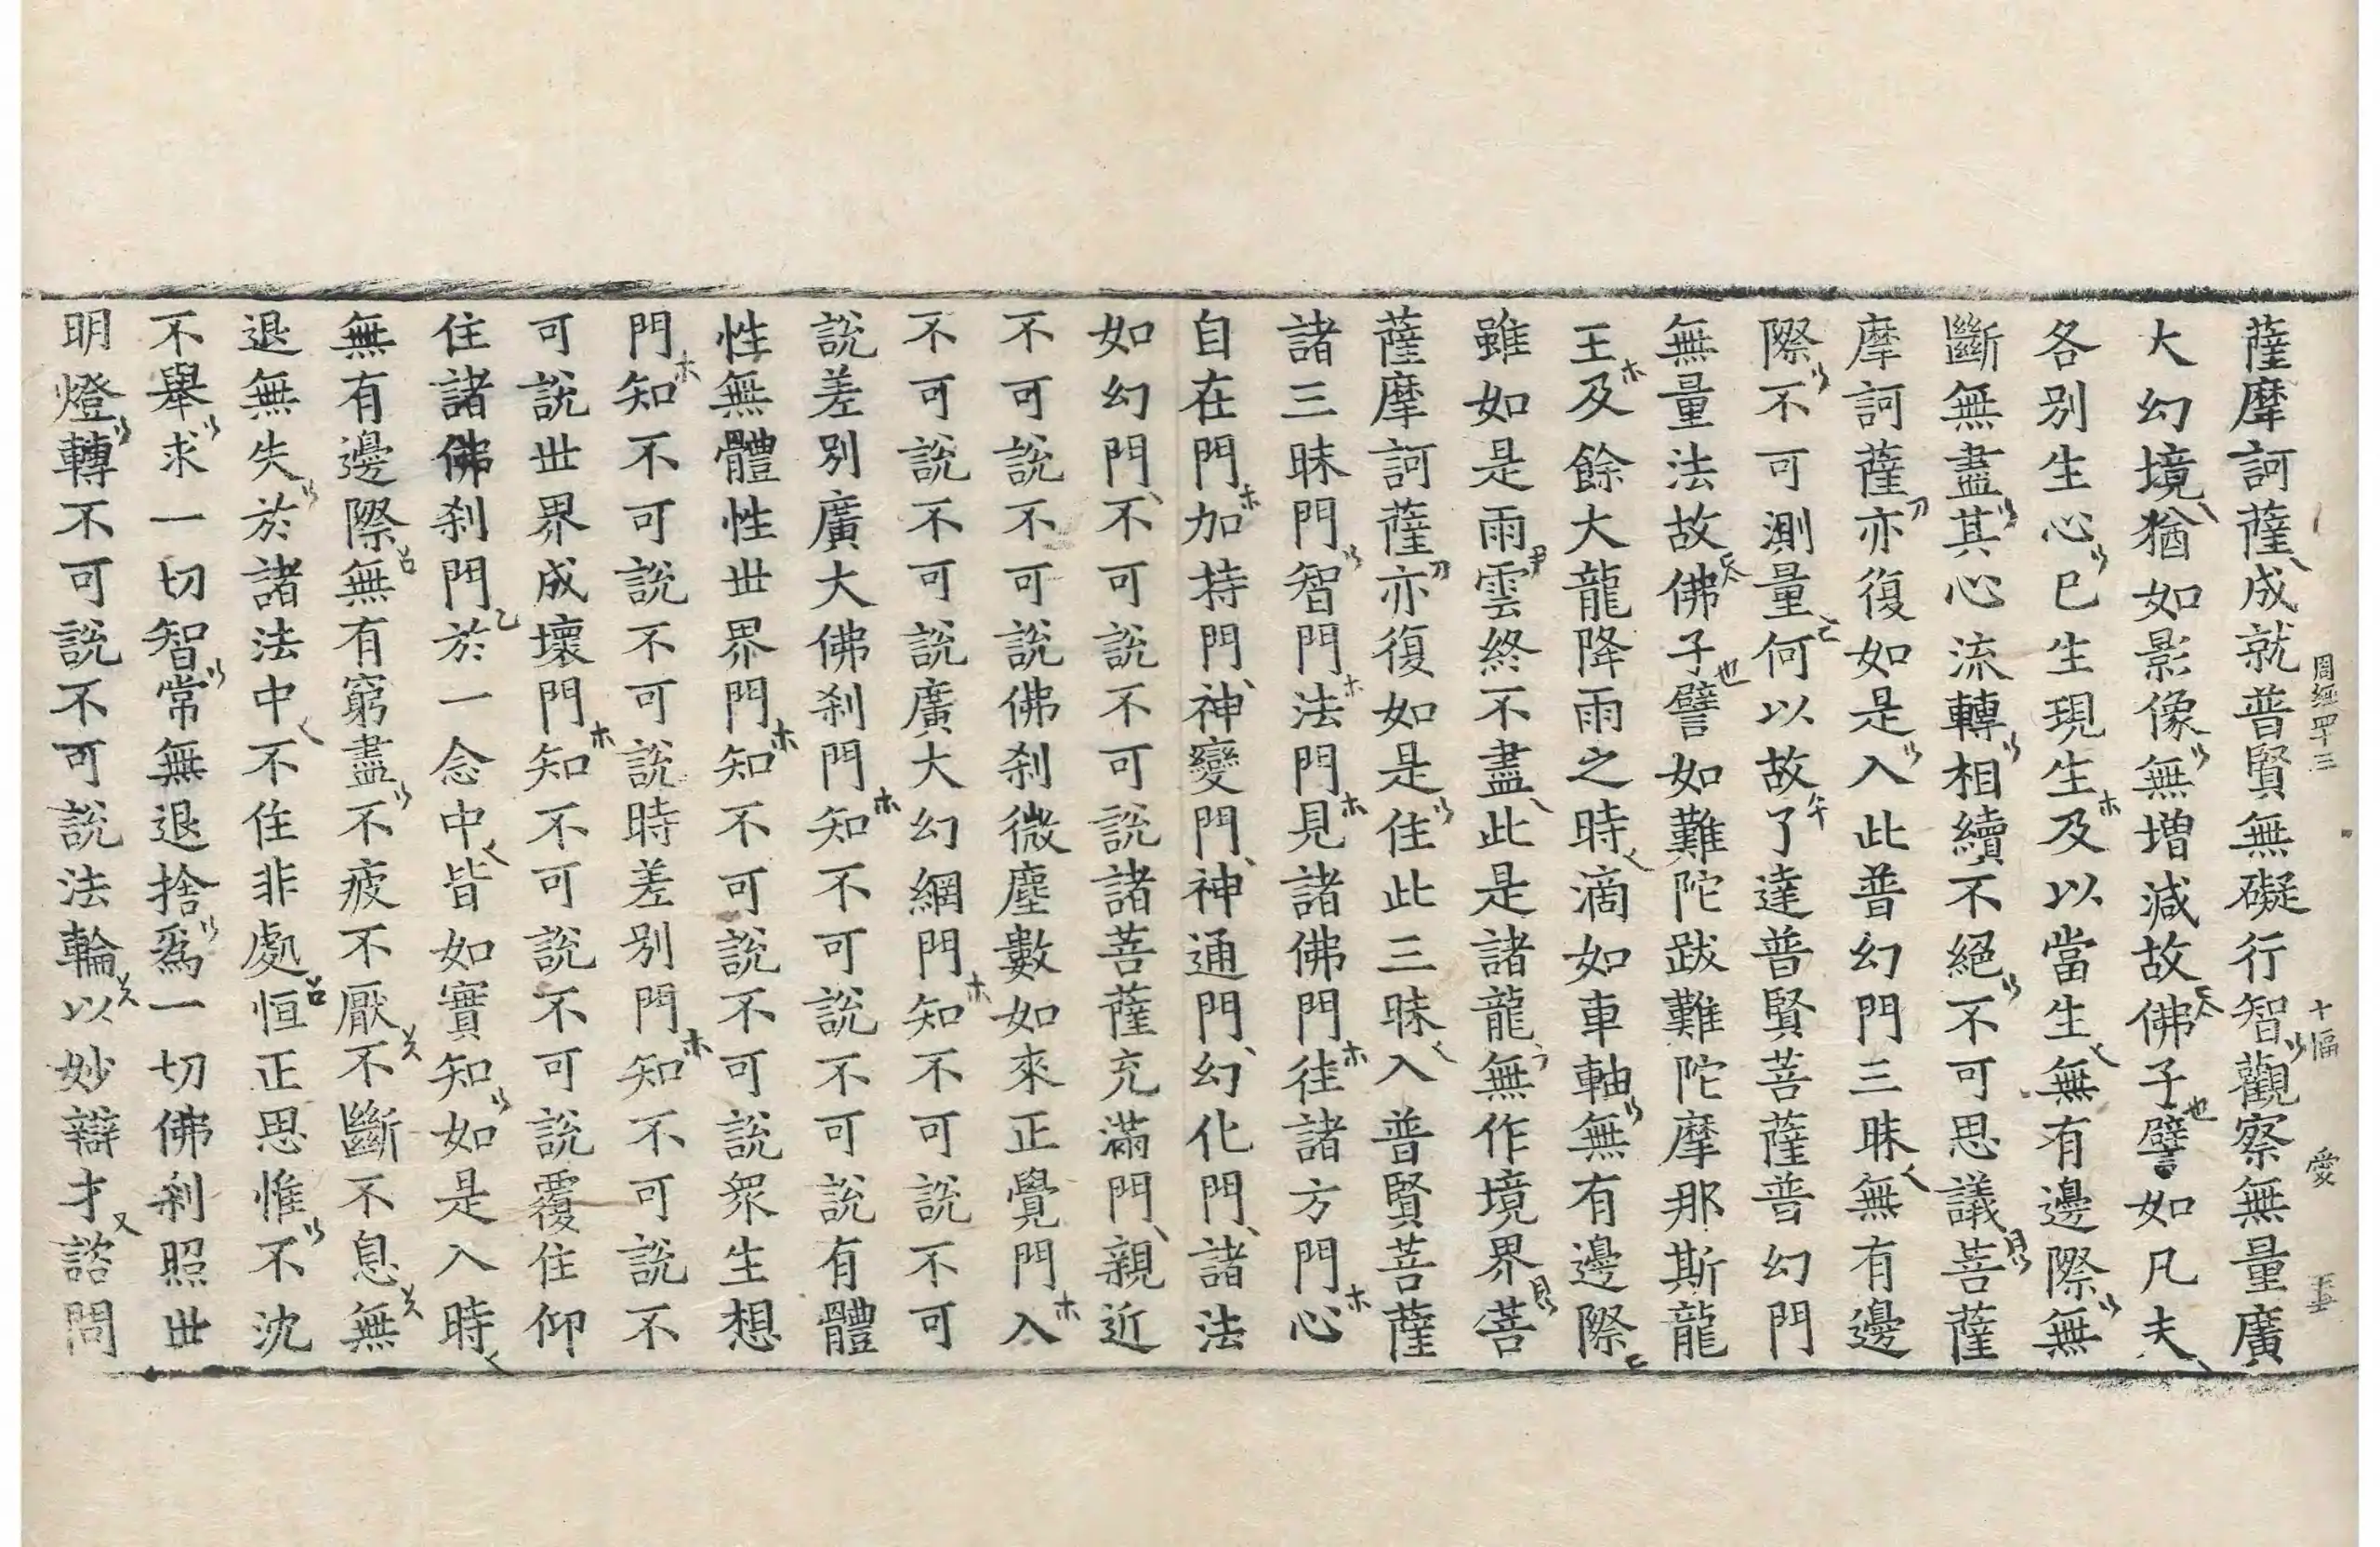 薩摩訶薩成就普賢無礙行智觀察無量廣
大幻境猶如影像無增減故佛子譬如凡夫
各別生心已生現生及以當生無有邊際無
斷無盡其心流轉相續不絕不可思議菩薩
摩訶薩亦復如是入此普幻門三昧無有邊
際不可測量何以故了達普賢菩薩普幻門
無量法故佛子譬如難陀跋難陀摩那斯龍
王及餘大龍降雨之時滴如車軸無有邊際
雖如是雨雲終不盡此是諸龍無作境界菩
薩摩訶薩亦復如是住此三昧入普賢菩薩
諸三昧門智門法門見諸佛門往諸方門心
自在門加持門神變門神通門幻化門諸法
如幻門不可說不可說諸菩薩充滿門親近
不可說不可說佛剎微塵數如來正覺門入
不可說不可說廣大幻網門知不可說不可
說差別廣大佛剎門知不可說不可說有體
性無體性世界門知不可說不可說衆生想
門知不可說不可說時差別門知不可說不
可說世界成壞門知不可說不可說覆住仰
住諸佛剎門於一念中皆如實知如是入時
無有邊際無有窮盡不疲不厭不斷不息無
退無失於諸法中不住非處恒正思惟不沈
不舉求一切智常無退捨爲一切佛剎照世
明燈轉不可說不可說法輪以妙辯才諮問
周經四十三 十幅 愛